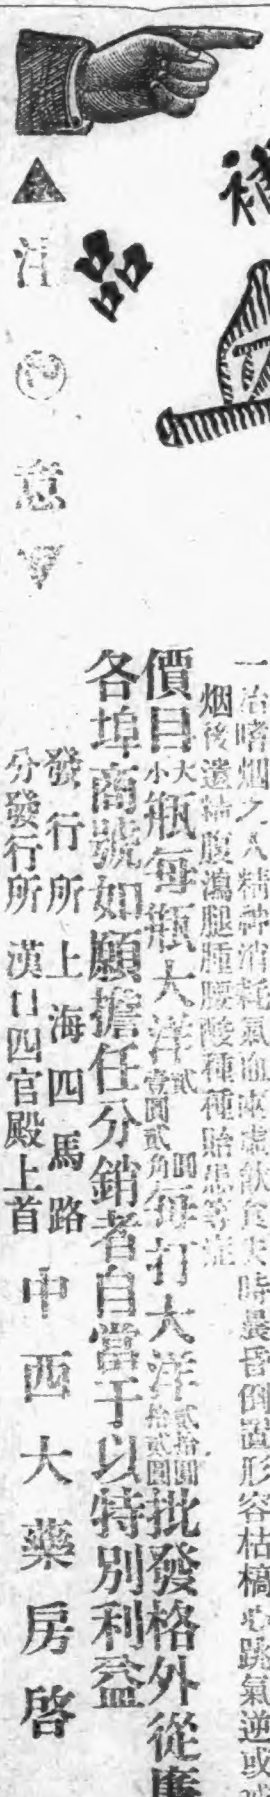 補
品
一治嗜烟之人精神消耗氣血兩虛飲食失時晨昏倒置形容枯槁心跳氣逆或戒
烟後遺精腹瀉腿腫腰酸種種貽患等症
價目大小瓶每瓶大洋貳圓壹圓貳角每打大洋貳拾圓拾貳圓批發格外從廉
各埠商號如願擔任分銷者自當予以特別利益
發行所上海四馬路
分發行所漢口四官殿上首
中西大藥房啓
注意